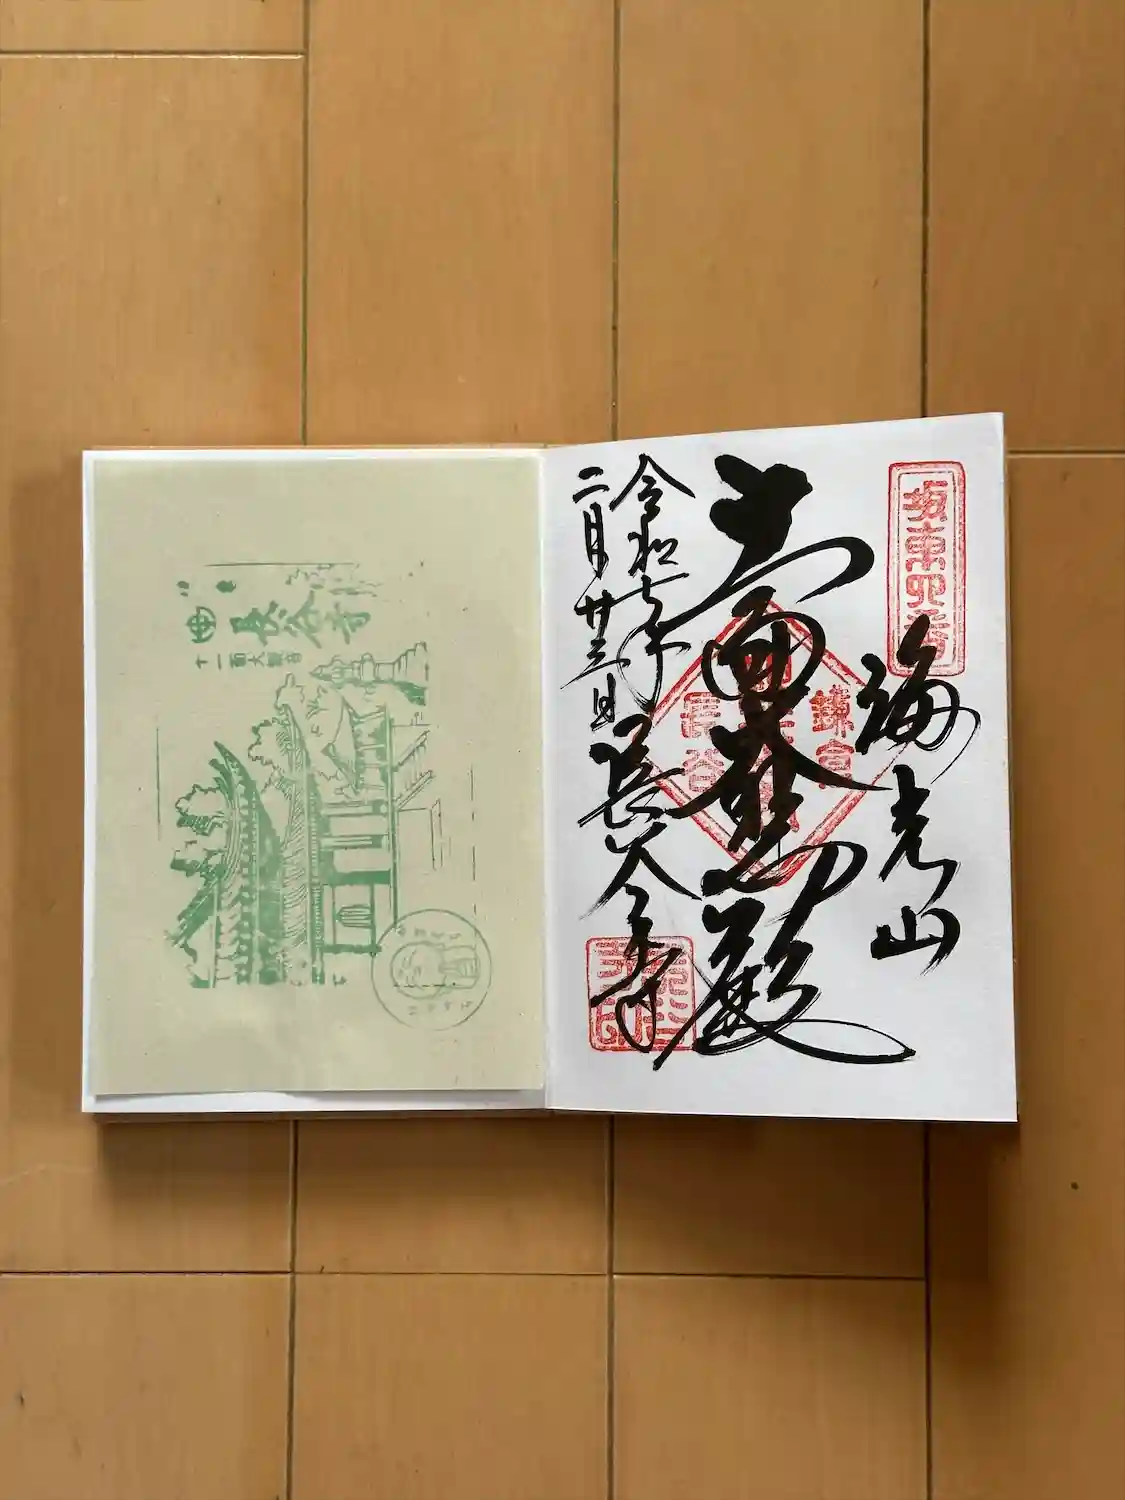 坂東四番
海光山
十一面大悲殿
鎌倉
長谷
令和七年
二月廿三日
長谷寺
長谷寺
十一面大観音